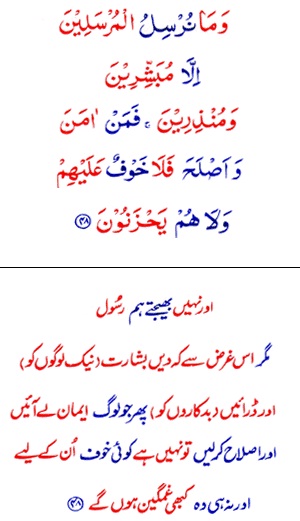 وَمَا نُرْسِلُ الْمُرْسَلِيْنَ
اِلَّا مُبَشِّرِيْنَ
وَمُنْذِرِيْنَ ۚ فَمَنْ اٰمَنَ
وَاَصْلَحَ فَلَا خَوْفٌ عَلَيْهِمْ
وَلَا هُمْ يَحْزَنُوْنَ ﴿۴۸﴾
اور نہیں بھیجتے ہم رسُول
مگر اس غرض سے کہ دیں بشارت (نیک لوگوں کو)
اور ڈرائیں (بدکاروں کو) پھر جو لوگ ایمان لے آئیں
اور اصلاح کرلیں تو نہیں ہے کوئی خوف اُن کے لیے
اور نہ ہی وہ کبھی غمگین ہوں گے ﴿۴۸﴾